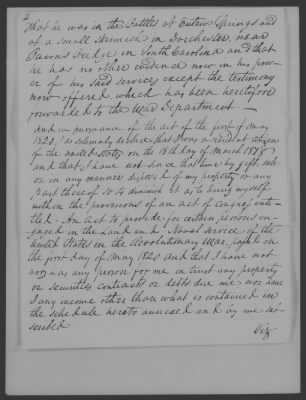 2
that he was in the Battles at Eutaw Springs and
at a small skirmish in Dorchester, near
Bacon's Bridge in South Carolina and that
he has no other evidence now in his pow-
er of his said services except the testimony
now offered which has been heretofore
forwarded to the War Department —
and in pursuance of the act of the first of May
1820, I solemnly declare that I was a resident citizen
of the united States on the 18th day of March 1818
and that I have not since that time by gift, sale
or in any manner disposed of my property or any
part thereof so to diminish it as to bring myself
within the provisions of an act of congress inti-
tled - An act to provide for certain persons en-
gaged in the Land and Naval service of the
United States in the Revolutionary War, passed on
the first day of May 1820 and that I have not
nor has any person for me in trust any property
or securities contracts or debts due me nor have
I any income other than what is contained in
the schedule hereto annexed and by me sub-
scribed
Viz